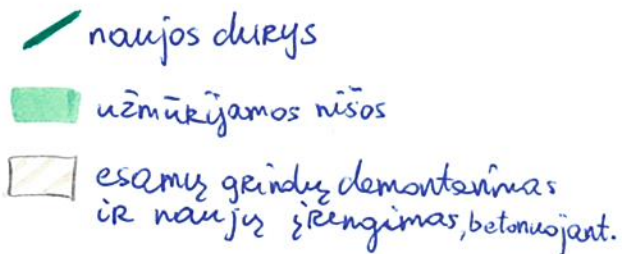 naujos durys
užmūrijamos nišos
esamų grindų demontavimas
ir naujų įrengimas, betonuojant.